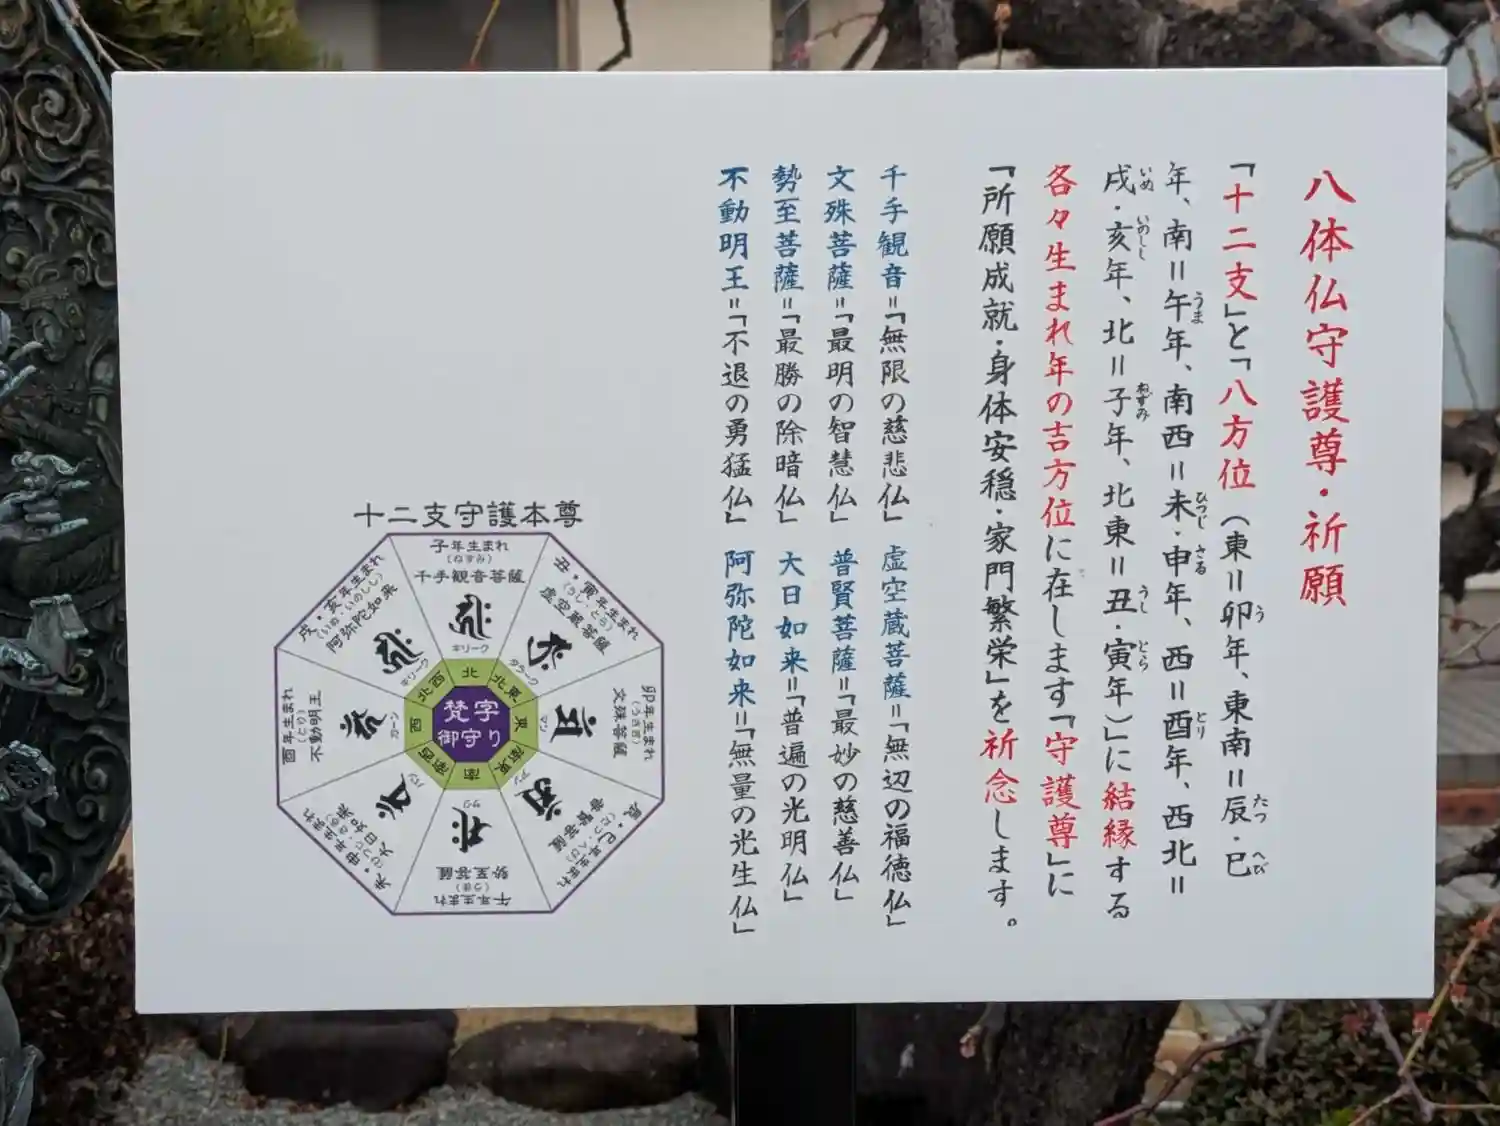 八体仏守護尊・祈願
「十二支」と「八方位（東＝卯年、東南＝辰・巳
う
たつ
へび
年、南＝午年、南西＝未・申年、西＝酉年、西北＝
うま
ひつじ
さる
とり
戌・亥年、北＝子年、北東＝丑・寅年）」に結縁する
いぬ
いのしし
ねずみ
うし
とら
各々生まれ年の吉方位に在します「守護尊」に
「所願成就・身体安穏・家門繁栄」を祈念します。
千手観音＝「無限の慈悲仏」　虚空蔵菩薩＝「無辺の福徳仏」
文殊菩薩＝「最明の智慧仏」　普賢菩薩＝「最妙の慈善仏」
勢至菩薩＝「最勝の除暗仏」　大日如来＝「普遍の光明仏」
不動明王＝「不退の勇猛仏」　阿弥陀如来＝「無量の光生仏」
十二支守護本尊
子年生まれ
（ねずみ）
千手観音菩薩
キリーク
北
丑・寅年生まれ
（うし・とら）
虚空蔵菩薩
タラーク
北東
卯年生まれ
（うさぎ）
文殊菩薩
マン
東
辰・巳年生まれ
（たつ・へび）
普賢菩薩
アン
南東
午年生まれ
（うま）
勢至菩薩
サク
南
未・申年生まれ
（ひつじ・さる）
大日如来
バン
南西
酉年生まれ
（とり）
不動明王
カーン
西
戌・亥年生まれ
（いぬ・いのしし）
阿弥陀如来
キリーク
北西
梵字
御守り